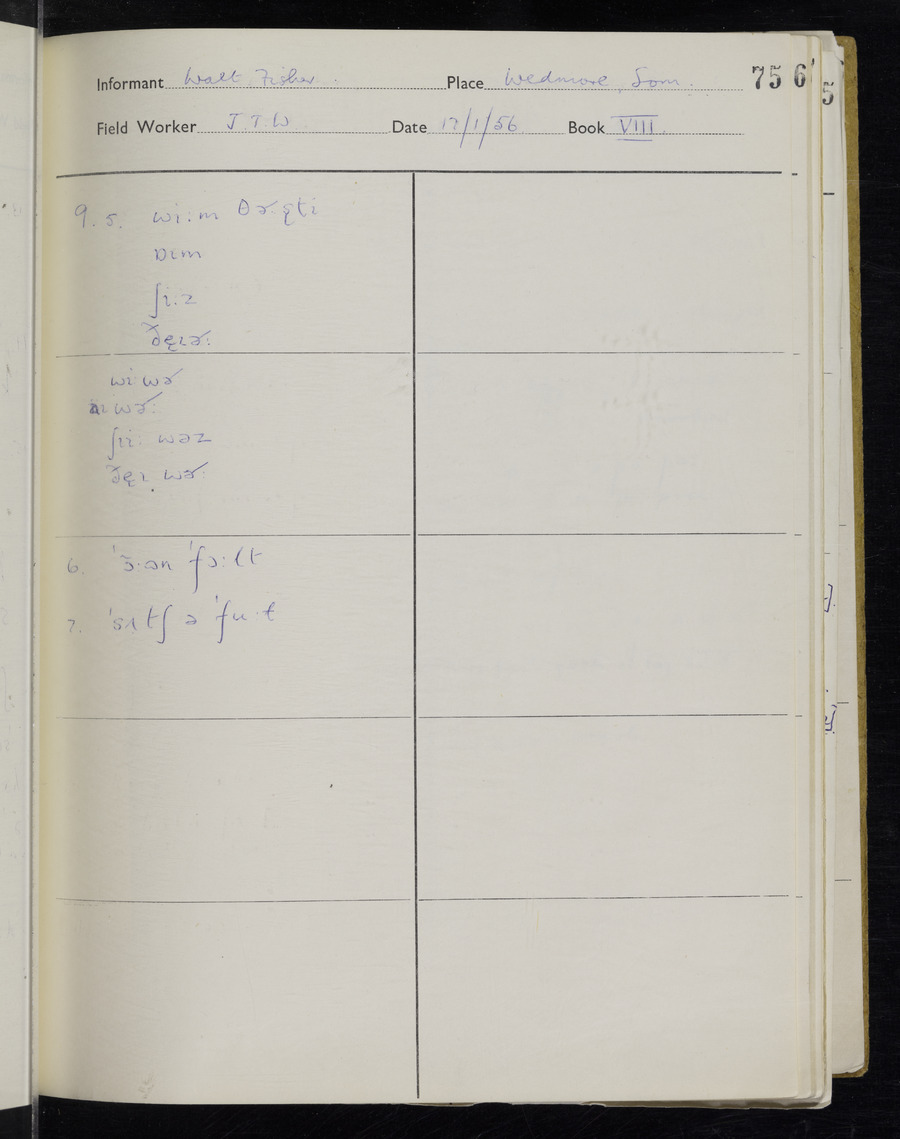 Informant Walt Fisher. Place Wedmore, Som. 756
Field Worker J.T.W Date 17/1/56 Book VIII
9. 5. wi:m θɚ:ʂti
ɒɩm
ʃɩ.z
ðe̜ɩɚ:
wi:wɚ
wɚ:
ʃɩi: wəz
ðe̜ɩ wɚ:
6. 'ɜ:ən 'fɔ:lt
7. 'sɩtʃ ə 'fu:t